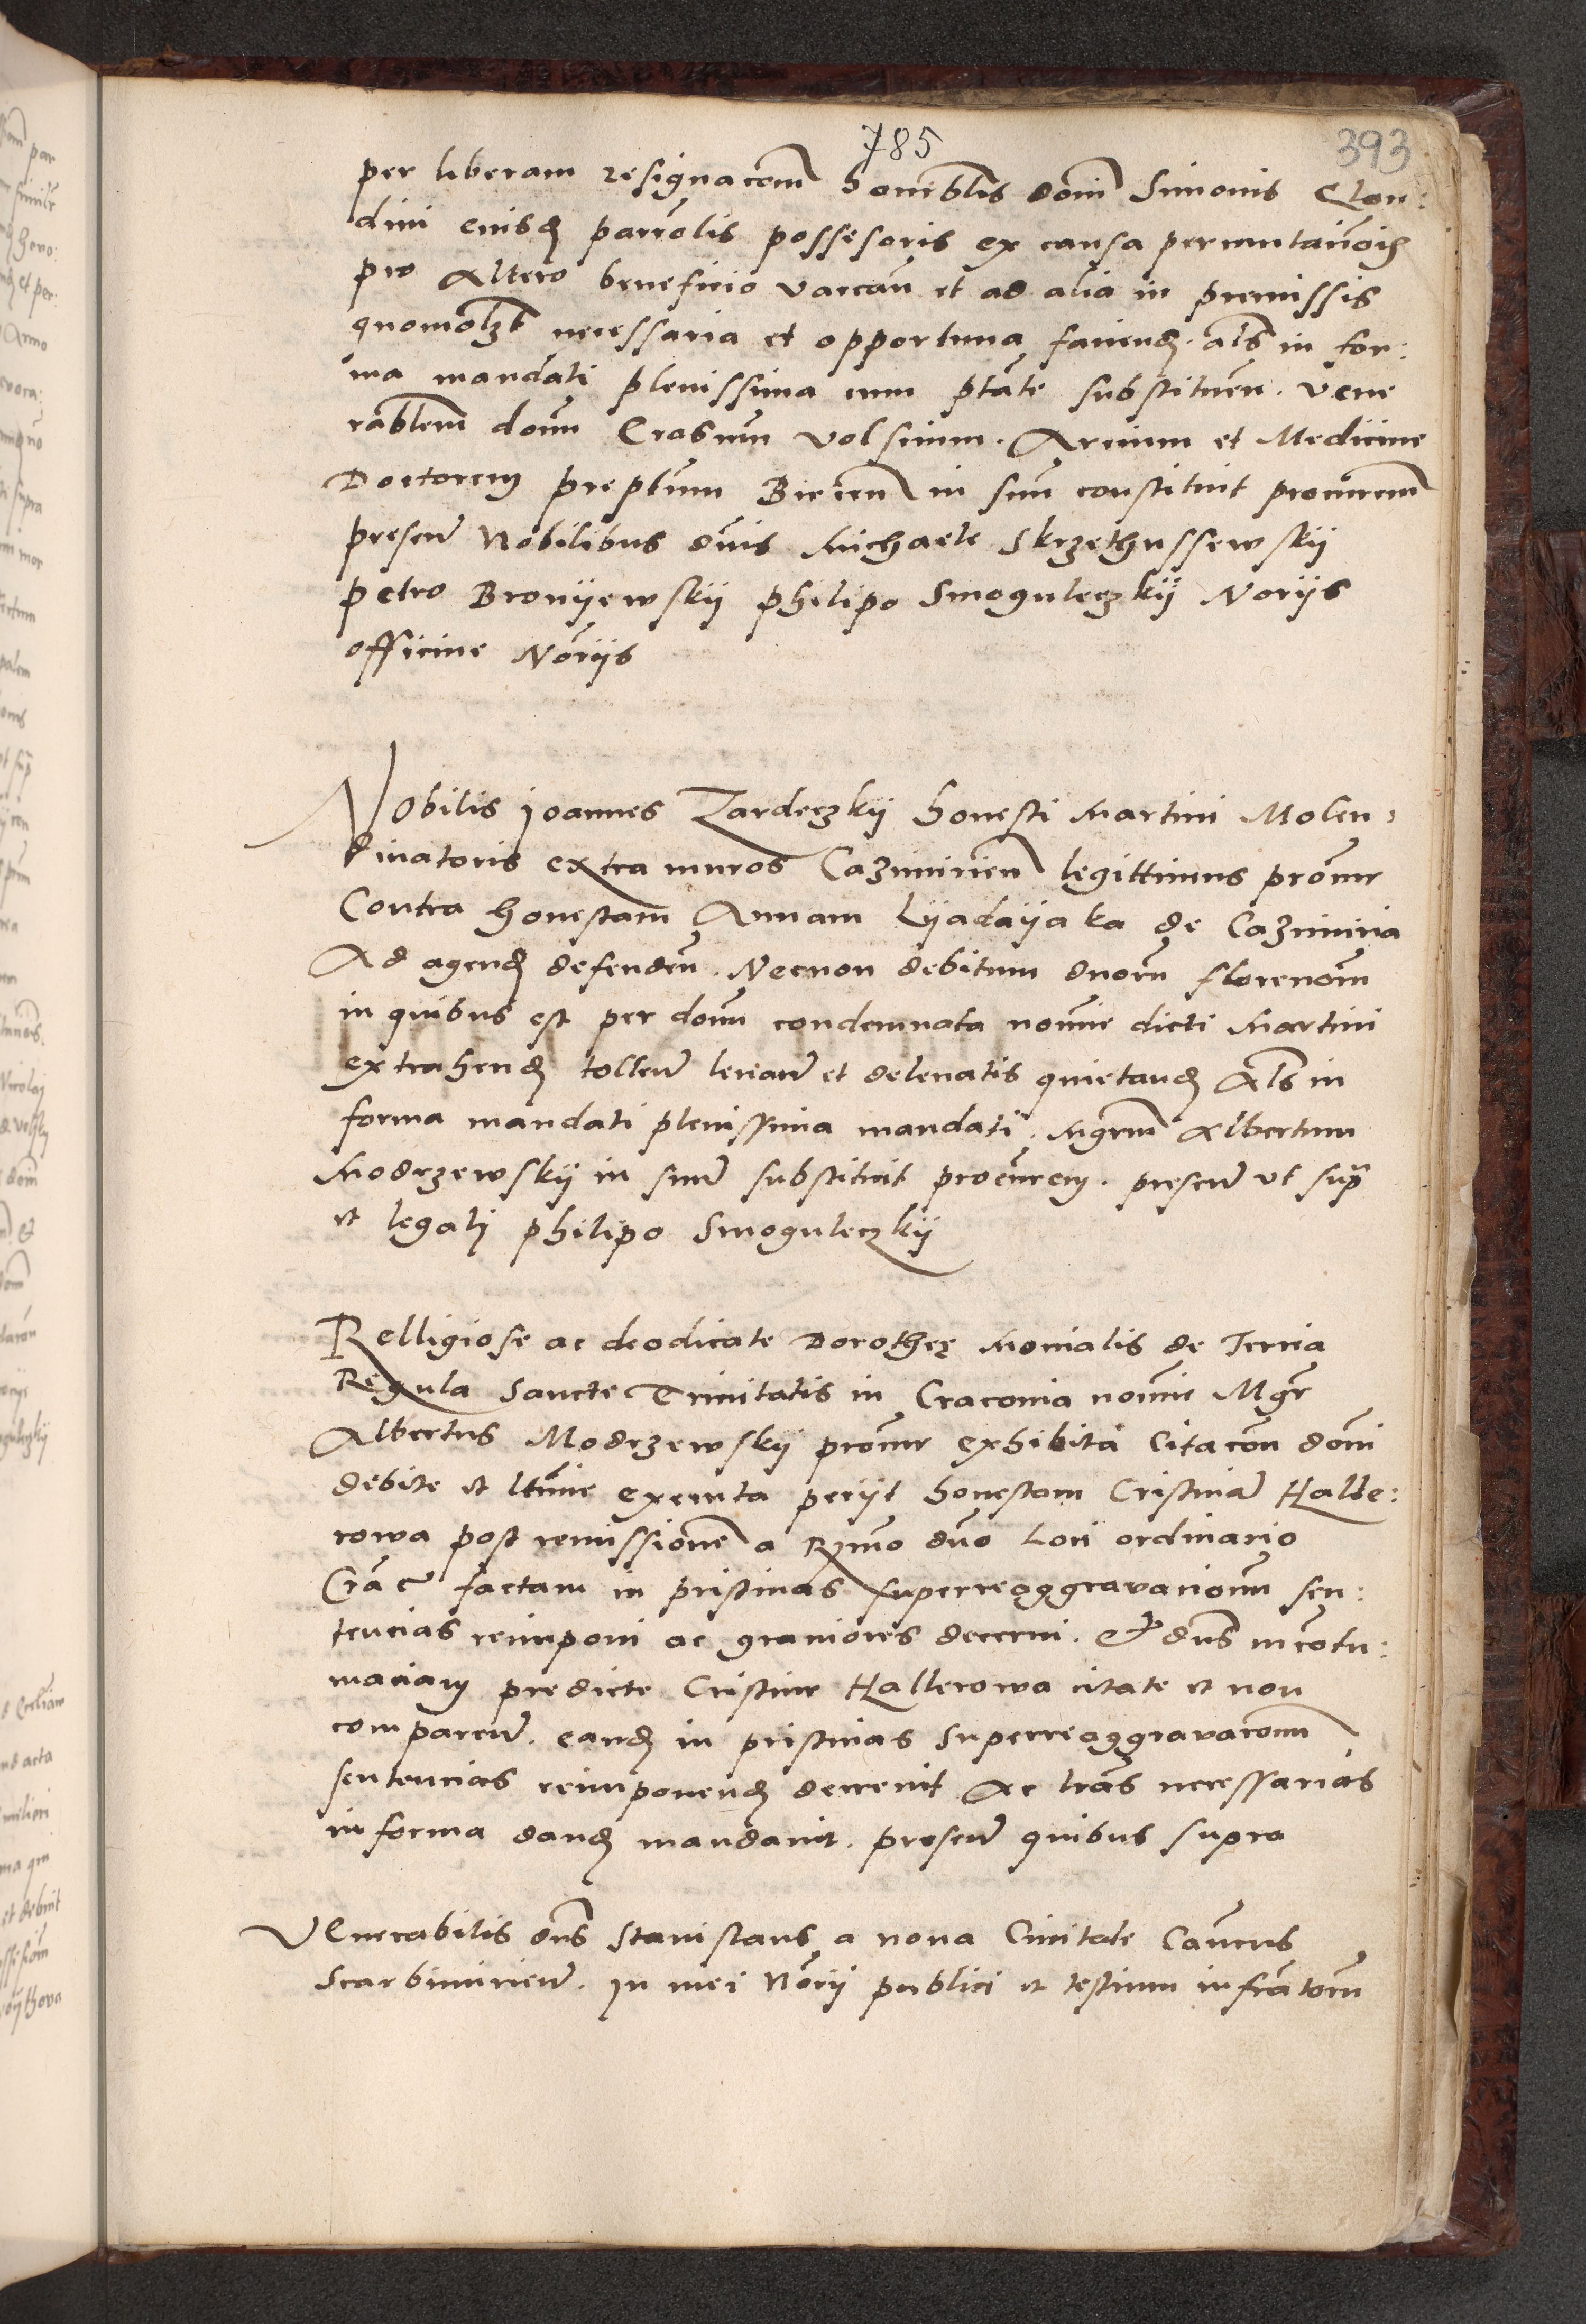 785
393
per liberam resignacem honrablis domi Simonis Clon:
dini eiusdem parrolis possesoris ex causa permutacionis
pro altero beneficio vaccan et ad alia in premissis
quomolibet necessaria et opportuna faciend. als in for:
ma mandati plenissima cum ptate substituen. vene
rablem domi Erasmum volsium. Arcium et Medicine
Doctorem preptum Biecen in suum constituit procurem
presen Nobilibus dnis Michaele Skrzethussewskij
petro Bronijewskij philipo Smoguleczkij Norijs
officine Norijs
Nobilis Joannes Zardeczkij honesti Martini Molen
dinatoris extra muros Cazimirien legittimus procur
Contra honestam Annam Lijadaijaka de Cazimiria
Ad agend defenden. Necnon debitum duoru florenoru
in quibus est per domi condemnata nomine dicti Martini
extrahend tollen levan et de levatis quietand Als in
forma mandati plenissima mandati. Mgrum Albertum
Modrzewskij in suum substituit procurem. presen vt supra
et legali philipo Smoguleczkij
Relligiose ac deodicate Dorothee Monialis de Tercia
Regula Sancte Trinitatis in Cracovia nomine Mgr
Albertus Modrzewskij procur exhibita Citacon domi
debite et ltime exemta petijt honestam Cristinam Halle:
rowa post remissionem a Rmo dno Loci ordinario
Crac factam in pristinas superreaggravacionum sen:
tencias reimponi ac graviores decerni. Et dns in contu:
maciam predicte Cristine Hallerowa citate et non
comparen. eand in pristinas superreaggravaconum
sentencias reimponend decrevit Ac lras necessarias
in forma dand mandavit. presen quibus supra
VEnerabilis dns Stanislaus a nova Civitate Canucus
Scarbimirien. In mei Norij publici et testium infratoru